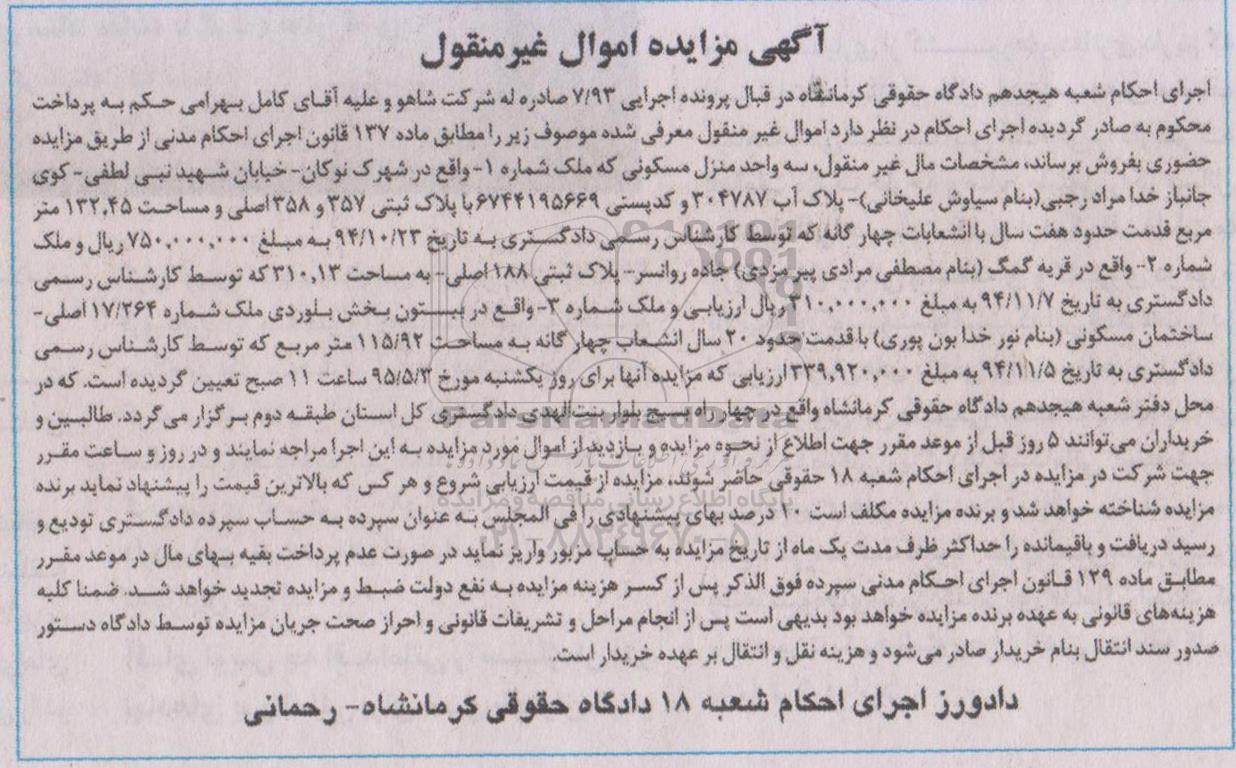 آگهی مزایده اموال غیرمنقول
اجرای احکام شعبه هیجدهم دادگاه حقوقی کرمانشاه در قبال پرونده اجرایی ۷/۹۳ صادره له شرکت شاهو و علیه آقای کامل بهرامی حکم به پرداخت
محکوم به صادر گردیده اجرای احکام در نظر دارد اموال غیر منقول معرفی شده موصوف زیر را مطابق ماده ۱۳۷ قانون اجرای احکام مدنی از طریق مزایده
حضوری بفروش برساند، مشخصات مال غیر منقول، سه واحد منزل مسکونی که ملک شماره ۱- واقع در شهرک نوکان- خیابان شهید نبی لطفی- کوی
جانباز خدا مراد رجبی(بنام سیاوش علیخانی)- پلاک آب ۳۰۴۷۸۷ و کدپستی ۶۷۴۴۱۹۵۶۶۹ با پلاک ثبتی ۳۵۷ و ۳۵۸ اصلی و مساحت ۱۳۲,۴۵ متر
مربع قدمت حدود هفت سال با انشعابات چهار گانه که توسط کارشناس رسمی دادگستری به تاریخ ۹۴/۱۰/۲۳ به مبلغ ۷۵۰,۰۰۰,۰۰۰ ریال و ملک
شماره ۲- واقع در قریه گمگ (بنام مصطفی مرادی پیر مزدی) جاده روانسر- پلاک ثبتی ۱۸۸ اصلی- به مساحت ۳۱۰,۱۳ که توسط کارشناس رسمی
دادگستری به تاریخ ۹۴/۱۱/۷ به مبلغ ۳۱۰,۰۰۰,۰۰۰ ریال ارزیابی و ملک شماره ۳- واقع در بیستون بخش بلوردی ملک شماره ۱۷/۲۶۴ اصلی-
ساختمان مسکونی (بنام نور خدا بون پوری) با قدمت حدود ۲۰ سال انشعاب چهار گانه به مساحت ۱۱۵/۹۲ متر مربع که توسط کارشناس رسمی
دادگستری به تاریخ ۹۴/۱۱/۵ به مبلغ ۳۳۹,۹۲۰,۰۰۰ ارزیابی که مزایده آنها برای روز یکشنبه مورخ ۹۵/۵/۳ ساعت ۱۱ صبح تعیین گردیده است. که در
محل دفتر شعبه هیجدهم دادگاه حقوقی کرمانشاه واقع در چهار راه بسیج بلوار بنت‌الهدی دادگستری کل استان طبقه دوم برگزار می‌گردد. طالبین و
خریداران می‌توانند ۵ روز قبل از موعد مقرر جهت اطلاع از نحوه مزایده و بازدید از اموال مورد مزایده به این اجرا مراجه نمایند و در روز و ساعت مقرر
جهت شرکت در مزایده در اجرای احکام شعبه ۱۸ حقوقی حاضر شوند، مزایده از قیمت ارزیابی شروع و هر کس که بالاترین قیمت را پیشنهاد نماید برنده
مزایده شناخته خواهد شد و برنده مزایده مکلف است ۱۰ درصد بهای پیشنهادی را فی المجلس به عنوان سپرده به حساب سپرده دادگستری تودیع و
رسید دریافت و باقیمانده را حداکثر ظرف مدت یک ماه از تاریخ مزایده به حساب مزبور واریز نماید در صورت عدم پرداخت بقیه بهای مال در موعد مقرر
مطابق ماده ۱۲۹ قانون اجرای احکام مدنی سپرده فوق الذکر پس از کسر هزینه مزایده به نفع دولت ضبط و مزایده تجدید خواهد شد. ضمنا کلیه
هزینه‌های قانونی به عهده برنده مزایده خواهد بود بدیهی است پس از انجام مراحل و تشریفات قانونی و احراز صحت جریان مزایده توسط دادگاه دستور
صدور سند انتقال بنام خریدار صادر می‌شود و هزینه نقل و انتقال بر عهده خریدار است.
دادورز اجرای احکام شعبه ۱۸ دادگاه حقوقی کرمانشاه- رحمانی